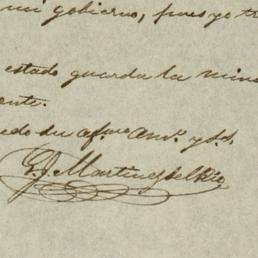 mi gobierno, pues yo tr
estado guarda la mina
ente.
edo su af.mo am.o y s.s.
G. J. Martinez del Rio